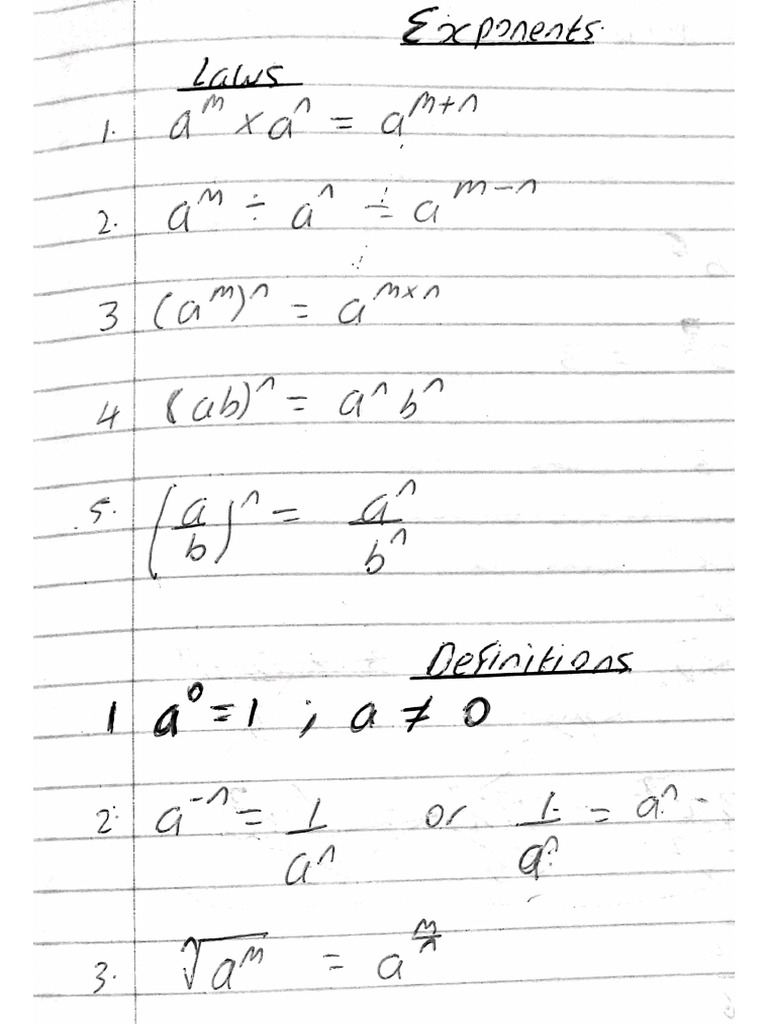 Exponents
Laws
1. aᵐ × aⁿ = aᵐ⁺ⁿ
2. aᵐ ÷ aⁿ = aᵐ⁻ⁿ
3 (aᵐ)ⁿ = aᵐˣⁿ
4 (ab)ⁿ = aⁿbⁿ
5. (a/b)ⁿ = aⁿ/bⁿ
Definitions
1 a⁰ = 1 ; a ≠ 0
2. a⁻ⁿ = 1/aⁿ or 1/aⁿ = aⁿ
3. ⁿ√aᵐ = a^(m/n)